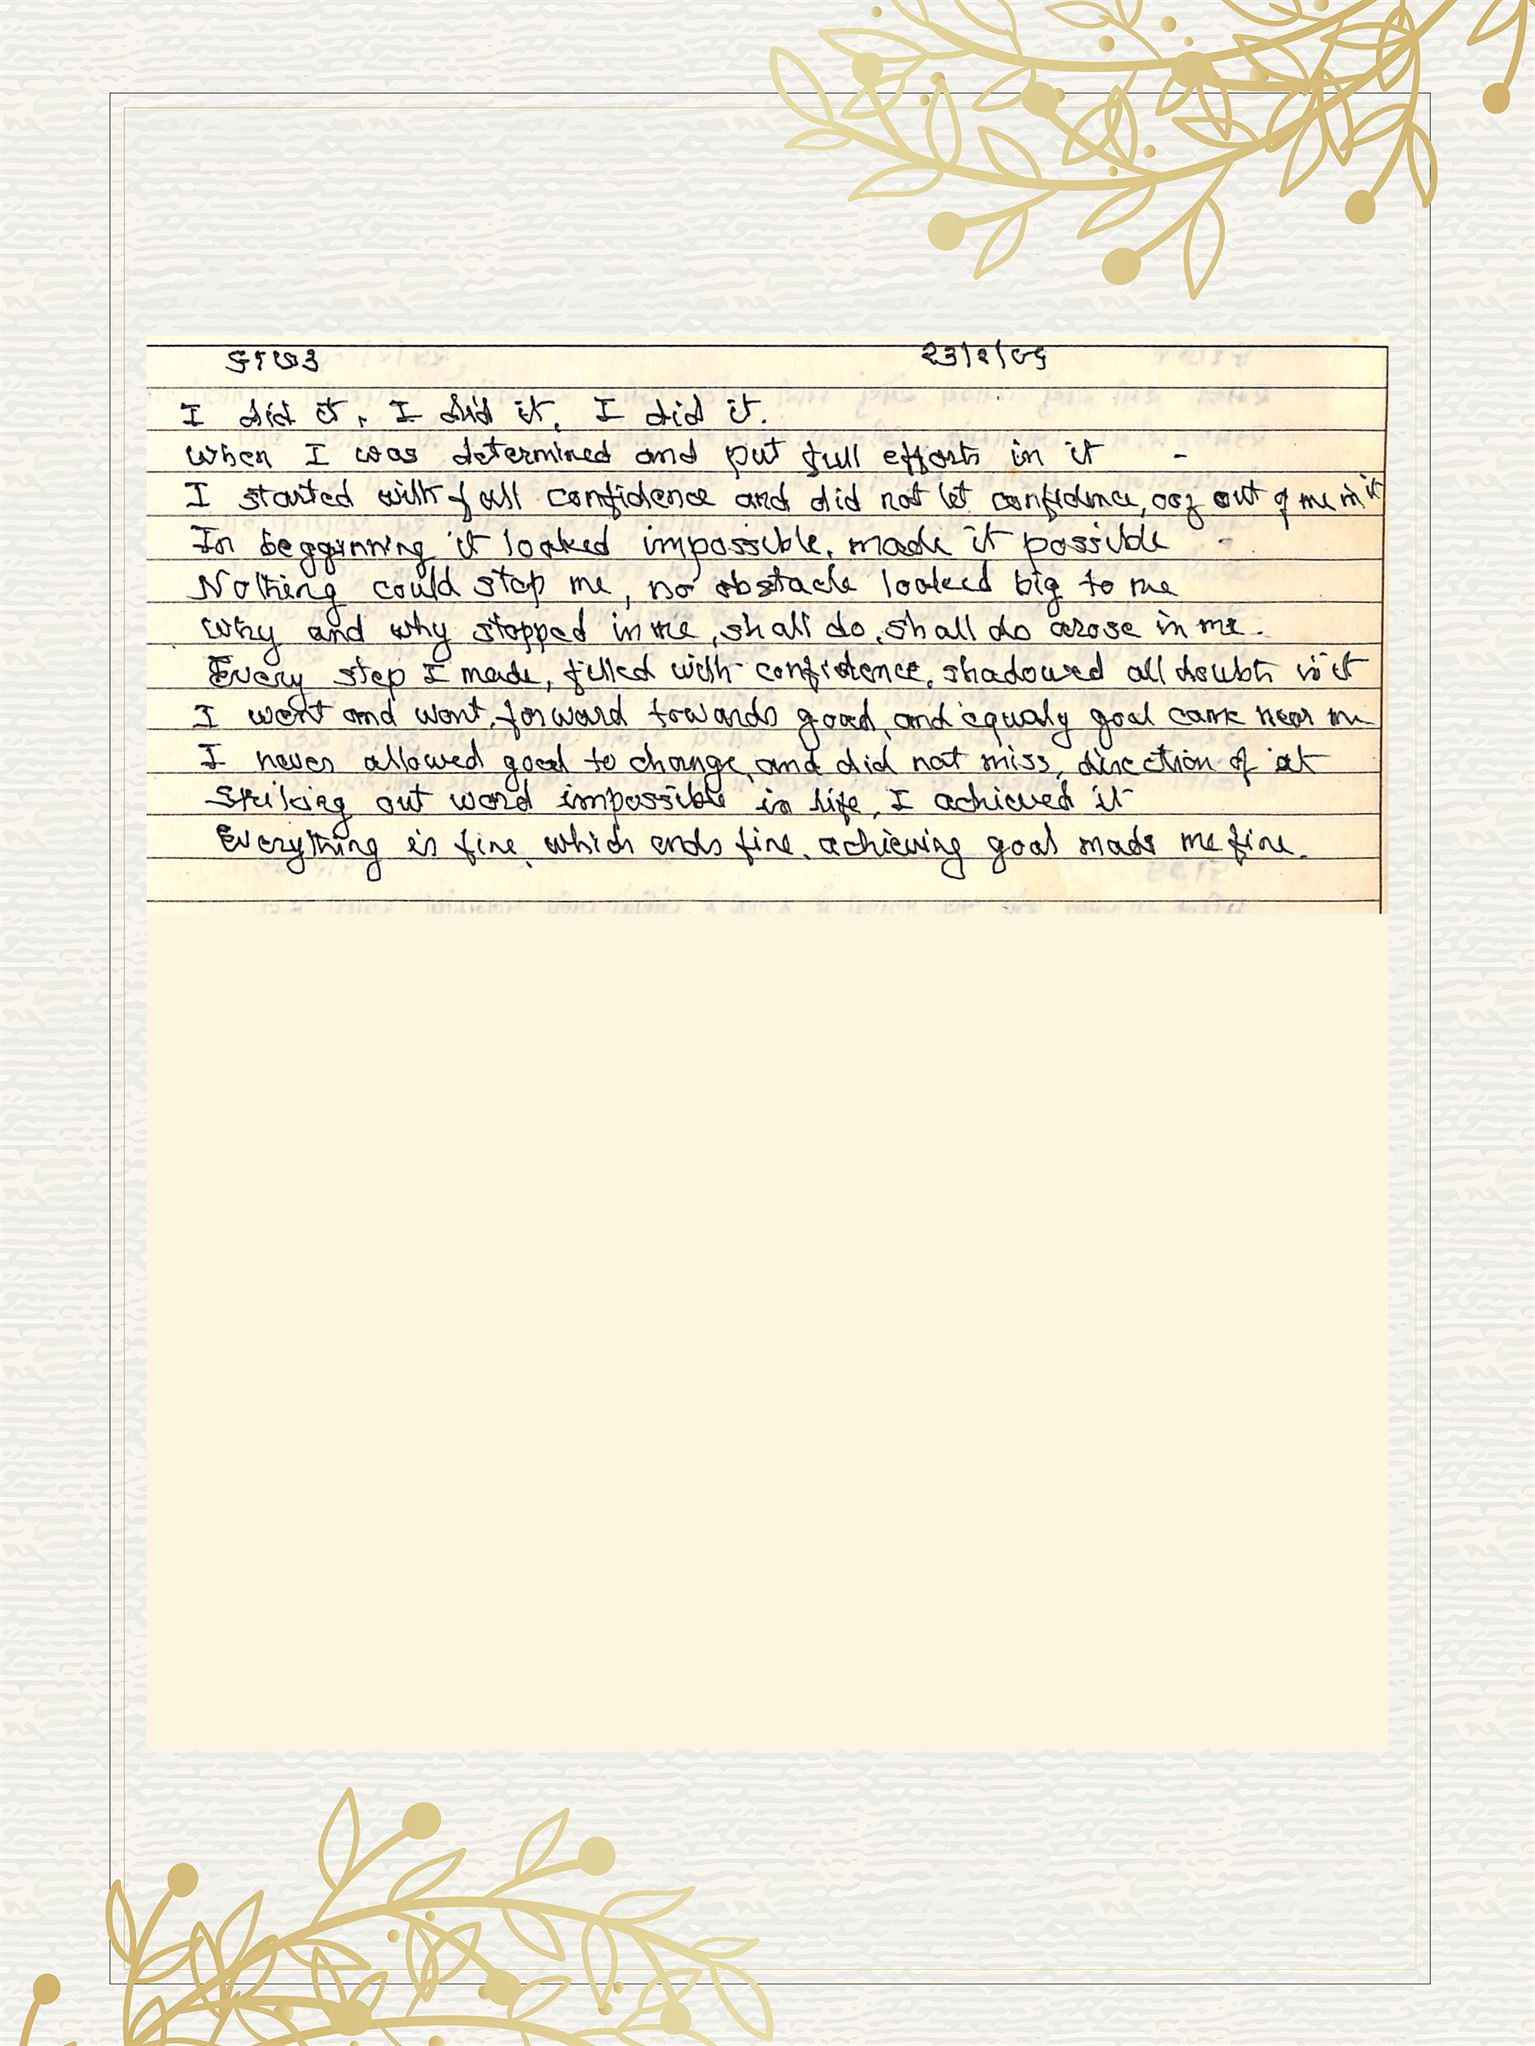 ૨૩/૨/૦૬
I did it, I did it, I did it.
when I was determined and put full efforts in it -
I started with full confidence and did not let confidence, ooz out of me in it
In beggynning it looked impossible, made it possible -
Nothing could stop me, no obstacle looked big to me
Why and why stopped in me, shall do, shall do arose in me.
Every step I made, filled with confidence, shadowed all doubts in it
I went and went, forward towards goal, and equaly goal came near me
I never allowed goal to change, and did not miss, direction of it
Striking out word impossible in life, I achieved it
Everything is fine, which ends fine, achieving goal made me fine.